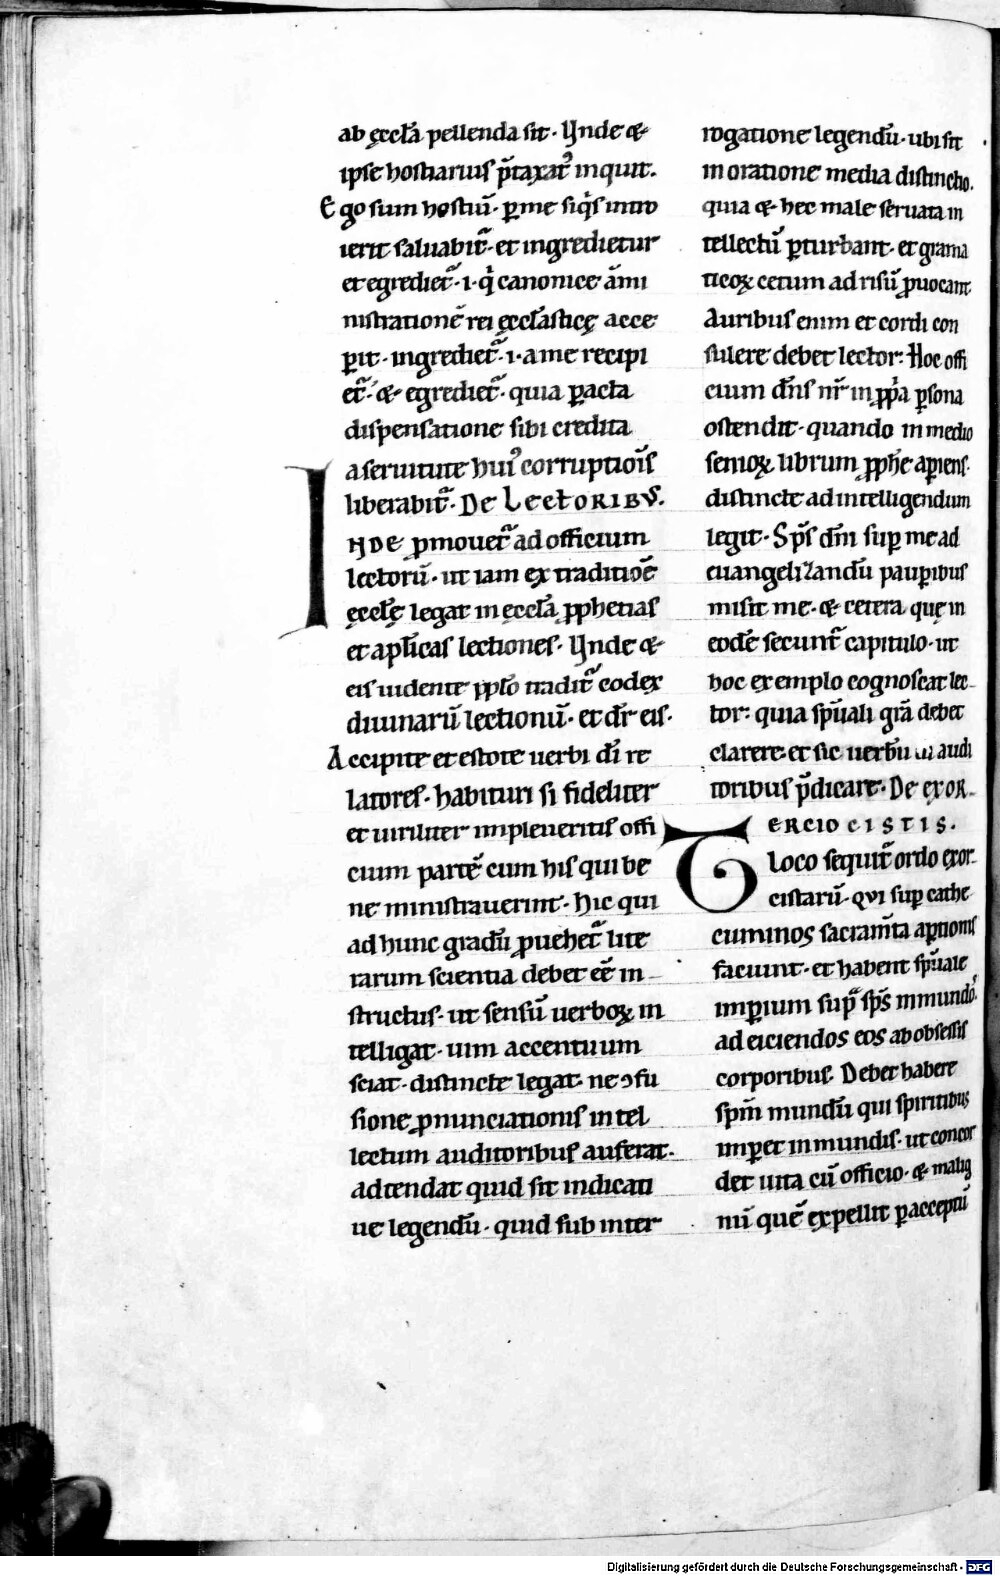 ab ęccl̄a pellenda sit. Vnde &
ipse hostiarius p̄taxat᷒ inquit.
Ego sum hostiū. ꝑ me siq̄s intro
ierit saluabit᷑. et ingredietur
et egrediet᷑. i. qͥ canonice ām̄i
nistrationē rei ęccl̄asticę acce
ꝑit. ingrediet᷑. i. a me recipi
et᷑. & egrediet᷑. quia ꝑacta
dispensatione sibi credita
a seruitute hui᷒ corruptiōis
liberabit᷑. De LectoRIBVS.
INDE ꝓmouet᷑ ad officium
lectorū. ut iam ex traditiōe
ęccl̄ę legat in ęccl̄a ꝓphetias
et apl̄icas lectiones. Vnde &
eis uidente pp̄lo tradit᷑ codex
diuinarū lectionū. et dr̄ eis.
Accipite et estote uerbi dī re
latores. habituri si fideliter
et uiriliter impleueritis offi
cium partē cum his qui be
ne ministrauerint. Hic qui
ad hunc gradū ꝓuehet᷑ lite
rarum scientia debet eē in
structus. ut sensū uerboꝝ in
telligat. uim accentuum
sciat. distincte legat. ne ꝯfu
sione ꝓnunciationis intel
lectum auditoribus auferat.
adtendat quid sit indicati
ue legendū. quid sub inter
rogatione legendū. ubi sit
in oratione media distinctio.
quia & hec male seruata in
tellectū ꝑturbant. et grama
ticoꝝ cetum ad risū ꝓuocant
Auribus enim et cordi con
sulere debet lector: Hoc offi
cium dn̄s nr̄ in ꝓpͥa ꝑsona
ostendit. quando in medio
senioꝝ librum ꝓphē aꝑiens.
distincte ad intelligendum
legit. Sp̄s dn̄i suꝑ me ad
euangelizandū pauꝑibus
misit me. & cetera quę in
eodē secunt᷑ capitulo. ut
hoc exemplo cognoscat lec
tor: quia sp̄uali gr̄a debet
clarere. et sic uerbū audi
toribus p̄dicare. De exoR
CISTIS.
TERCIO
loco sequit᷑ ordo exor
cistarū. qui suꝑ cathe
cuminos sacram̄ta aꝑtionis
faciunt. et habent sp̄uale
imꝑium supᷓ sp̄s inmundos.
ad eiciendos eos ab obsessis
corporibus. Debet habere
sp̄m mundū qui spiritibus
imꝑet inmundis. ut concor
det uita cū officio. & malig
nū quē expellit ꝑ acceptū